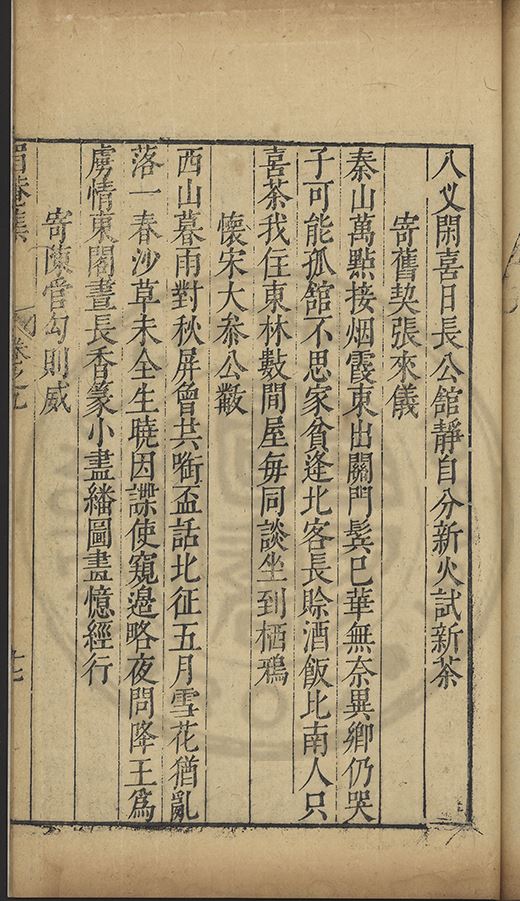 八叉閑喜日長公舘靜自分新火試新茶
寄舊契張來儀
秦山萬點接烟霞東出關門鬂已華無奈異鄉仍哭
子可能孤舘不思家貧逢北客長賒酒飯比南人只
喜茶我住東林數間屋每同談坐到栖鴉
懷宋大叅公敵
西山暮雨對秋屏曾共啣盃話北征五月雪花猶亂
落一春沙草未全生曉因諜使窺邊略夜問降王爲
虜情東閣晝長香篆小盡繙圖畫憶經行
寄陳管勾則威
眉菴集 卷之九